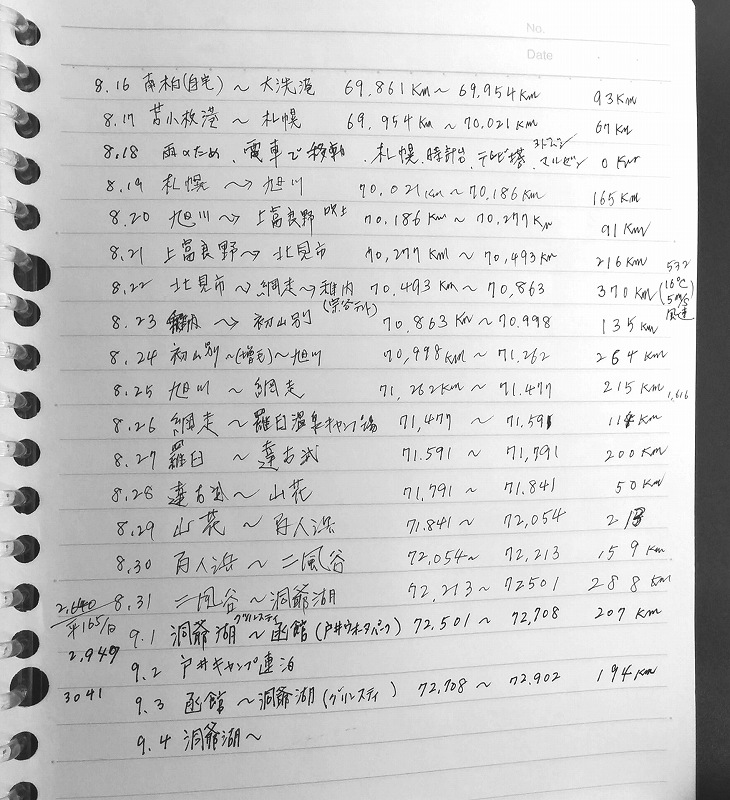 No.
Date
8.16 南柏(自宅) ～ 大洗港 69,861Km ～ 69,954Km 93Km
8.17 苫小牧港 ～ 札幌 69,954Km ～ 70,021Km 67Km
8.18 雨のため、電車で移動、札幌、時計台、テレビ塔、ヨドバシ マルゼン 0Km
8.19 札幌 ～> 旭川 70,021Km ～ 70,186Km 165Km
8.20 旭川 ～> 上富良野 吹上 70,186Km ～ 70,277Km 91Km
8.21 上富良野 ～> 北見市 70,277Km ～ 70,493Km 216Km
8.22 北見市 ～> 網走 ～> 稚内 (宗谷) 70,493Km ～ 70,863 370Km (16℃ 5m/s 風速 532
8.23 稚内 ～> 初山別 70,863Km ～ 70,998 135Km
8.24 初山別 ～(増毛)～ 旭川 70,998Km ～ 71,262 264Km
8.25 旭川 ～ 網走 71,262Km ～ 71,477 215Km 1,616
8.26 網走 ～ 羅臼温泉キャンプ場 71,477 ～ 71,591 114Km
8.27 羅臼 ～ 達古武 71,591 ～ 71,791 200Km
8.28 達古武 ～ 山花 71,791 ～ 71,841 50Km
8.29 山花 ～ 百人浜 71,841 ～ 72,054 213
8.30 百人浜 ～ 二風谷 72,054 ～ 72,213 159Km
2,640 8.31 二風谷 ～ 洞爺湖 72,213 ～ 72501 288Km
平165/日 9.1 洞爺湖 グリルスティ ～ 函館 (戸井ウォータパーク) 72,501 ～ 72,708 207Km
2,949 9.2 戸井キャンプ連泊
3041 9.3 函館 ～ 洞爺湖 (グリルスティ) 72,708 ～ 72,902 194Km
9.4 洞爺湖 ～